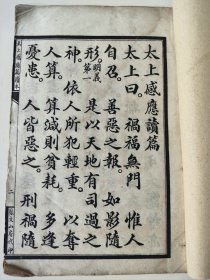 太上感應讀篇
太上曰。禍福無門惟人
自召。善惡之報。如影隨
形。明義第一是以天地有司過之
神。依人所犯輕重。以奪
人算。算減則貧耗。多逢
憂患。人皆惡之。刑禍隨